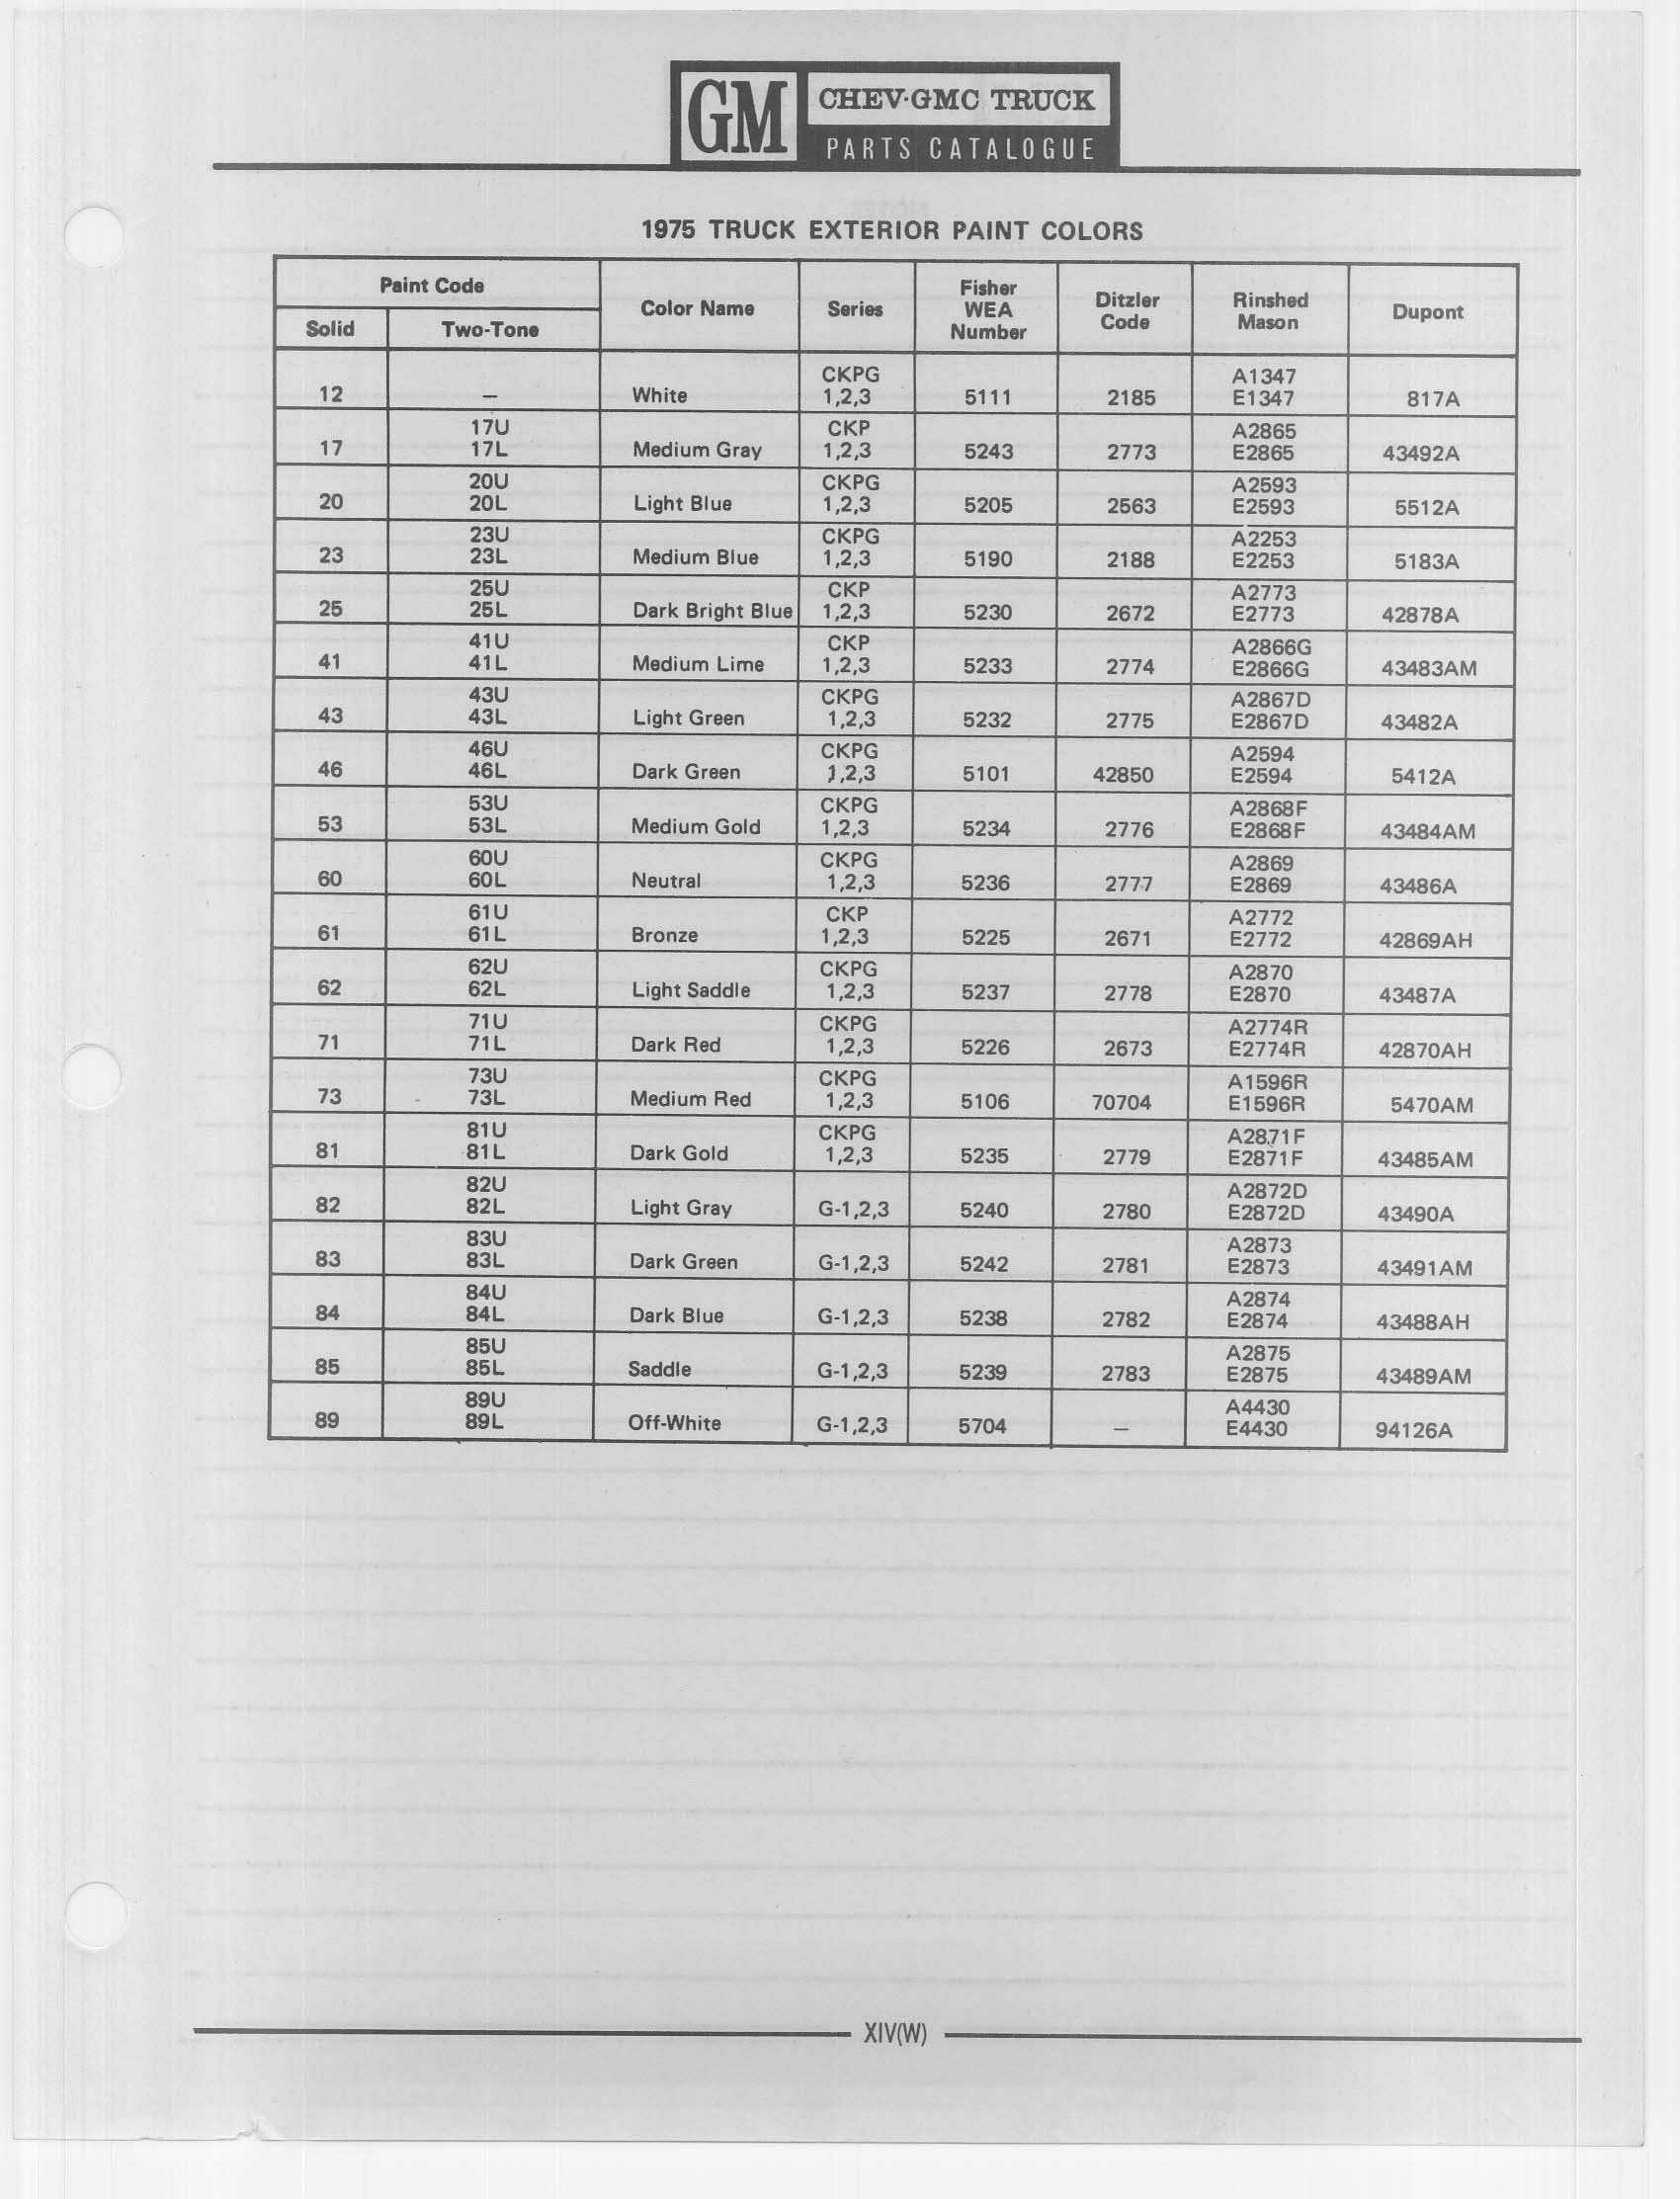 GM
CHEV·GMC TRUCK
PARTS CATALOGUE
1975 TRUCK EXTERIOR PAINT COLORS
Paint Code
Solid Two-Tone Color Name Series Fisher WEA Number Ditzler Code Rinshed Mason Dupont
12 – White CKPG 1,2,3 5111 2185 A1347 E1347 817A
17 17U 17L Medium Gray CKP 1,2,3 5243 2773 A2865 E2865 43492A
20 20U 20L Light Blue CKPG 1,2,3 5205 2563 A2593 E2593 5512A
23 23U 23L Medium Blue CKPG 1,2,3 5190 2188 A2253 E2253 5183A
25 25U 25L Dark Bright Blue CKP 1,2,3 5230 2672 A2773 E2773 42878A
41 41U 41L Medium Lime CKP 1,2,3 5233 2774 A2866G E2866G 43483AM
43 43U 43L Light Green CKPG 1,2,3 5232 2775 A2867D E2867D 43482A
46 46U 46L Dark Green CKPG 1,2,3 5101 42850 A2594 E2594 5412A
53 53U 53L Medium Gold CKPG 1,2,3 5234 2776 A2868F E2868F 43484AM
60 60U 60L Neutral CKPG 1,2,3 5236 2777 A2869 E2869 43486A
61 61U 61L Bronze CKP 1,2,3 5225 2671 A2772 E2772 42869AH
62 62U 62L Light Saddle CKPG 1,2,3 5237 2778 A2870 E2870 43487A
71 71U 71L Dark Red CKPG 1,2,3 5226 2673 A2774R E2774R 42870AH
73 73U 73L Medium Red CKPG 1,2,3 5106 70704 A1596R E1596R 5470AM
81 81U 81L Dark Gold CKPG 1,2,3 5235 2779 A2871F E2871F 43485AM
82 82U 82L Light Gray G-1,2,3 5240 2780 A2872D E2872D 43490A
83 83U 83L Dark Green G-1,2,3 5242 2781 A2873 E2873 43491AM
84 84U 84L Dark Blue G-1,2,3 5238 2782 A2874 E2874 43488AH
85 85U 85L Saddle G-1,2,3 5239 2783 A2875 E2875 43489AM
89 89U 89L Off-White G-1,2,3 5704 – A4430 E4430 94126A
XIV(W)